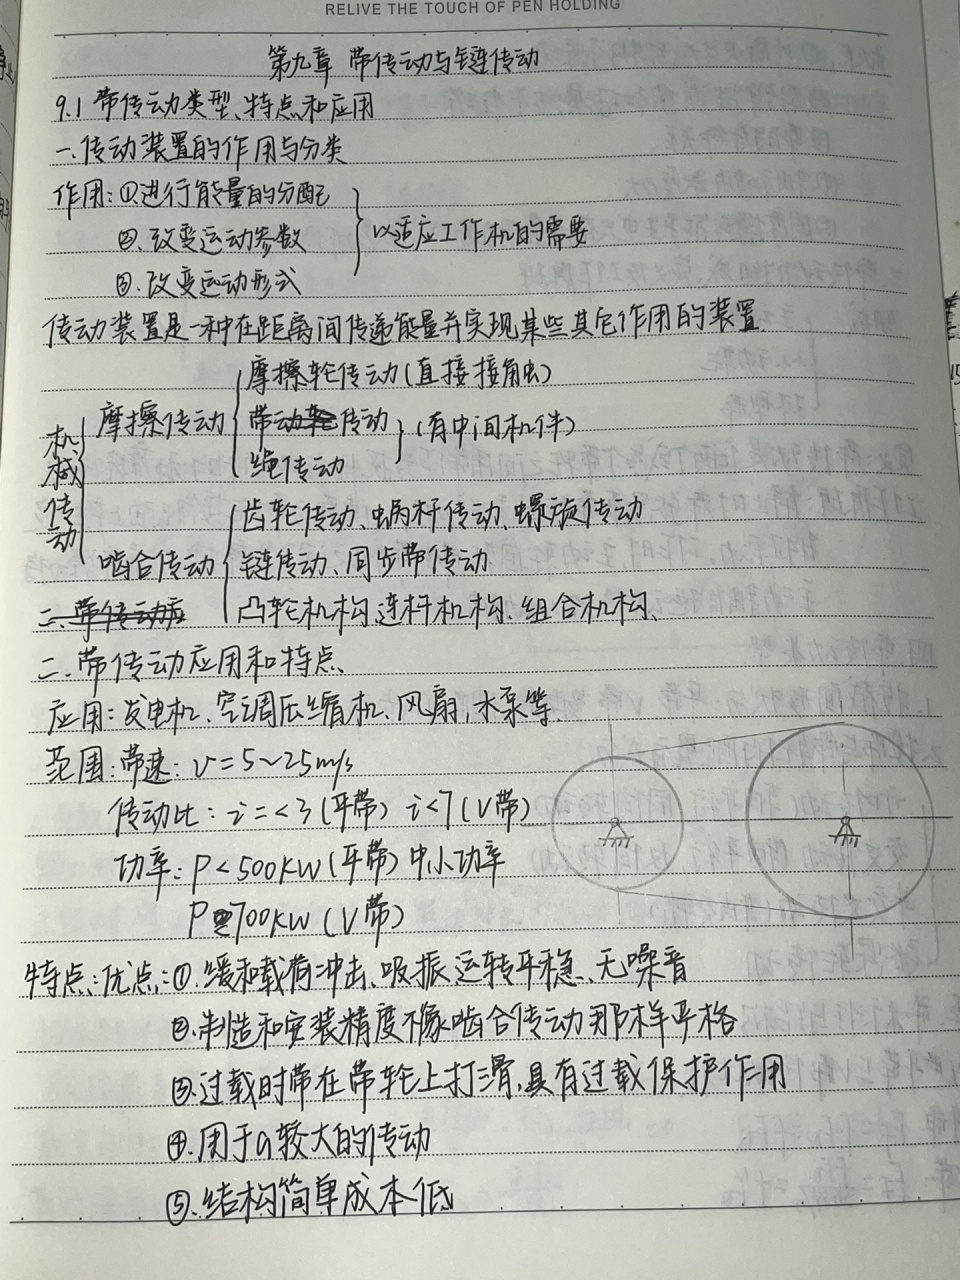 RELIVE THE TOUCH OF PEN HOLDING
第九章 带传动与链传动
9.1 带传动类型、特点和应用
一、传动装置的作用与分类
作用:①进行能量的分配
②.改变运动参数 } 以适应工作机的需要
③.改变运动形式
传动装置是一种在距离间传递能量并实现某些其它作用的装置
机械传动
摩擦传动 { 摩擦轮传动(直接接触)
带传动 } (有中间机件)
绳传动
啮合传动 { 齿轮传动、蜗杆传动、螺旋传动
链传动、同步带传动
凸轮机构、连杆机构、组合机构、
二、带传动应用和特点、
应用:发电机、空调压缩机、风扇,水泵等.
范围:带速:v=5~25m/s
传动比:i=<3(平带) i<7(V带)
功率:P<500KW(平带)中小功率
700KW(V带)
特点:优点:①.缓和载荷冲击、吸振、运转平稳、无噪音
②.制造和安装精度不像啮合传动那样严格
③.过载时带在带轮上打滑,具有过载保护作用
④.用于a较大的传动
⑤.结构简单成本低